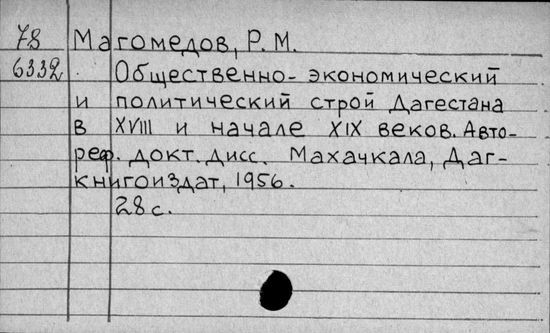 78 Магомедов, Р. М.
6332 Общественно-экономический
и политический строй Дагестана
в XVIII и начале XIX веков. Авто-
реф. докт. дисс. Махачкала, Даг-
книгоиздат, 1956.
28 с.